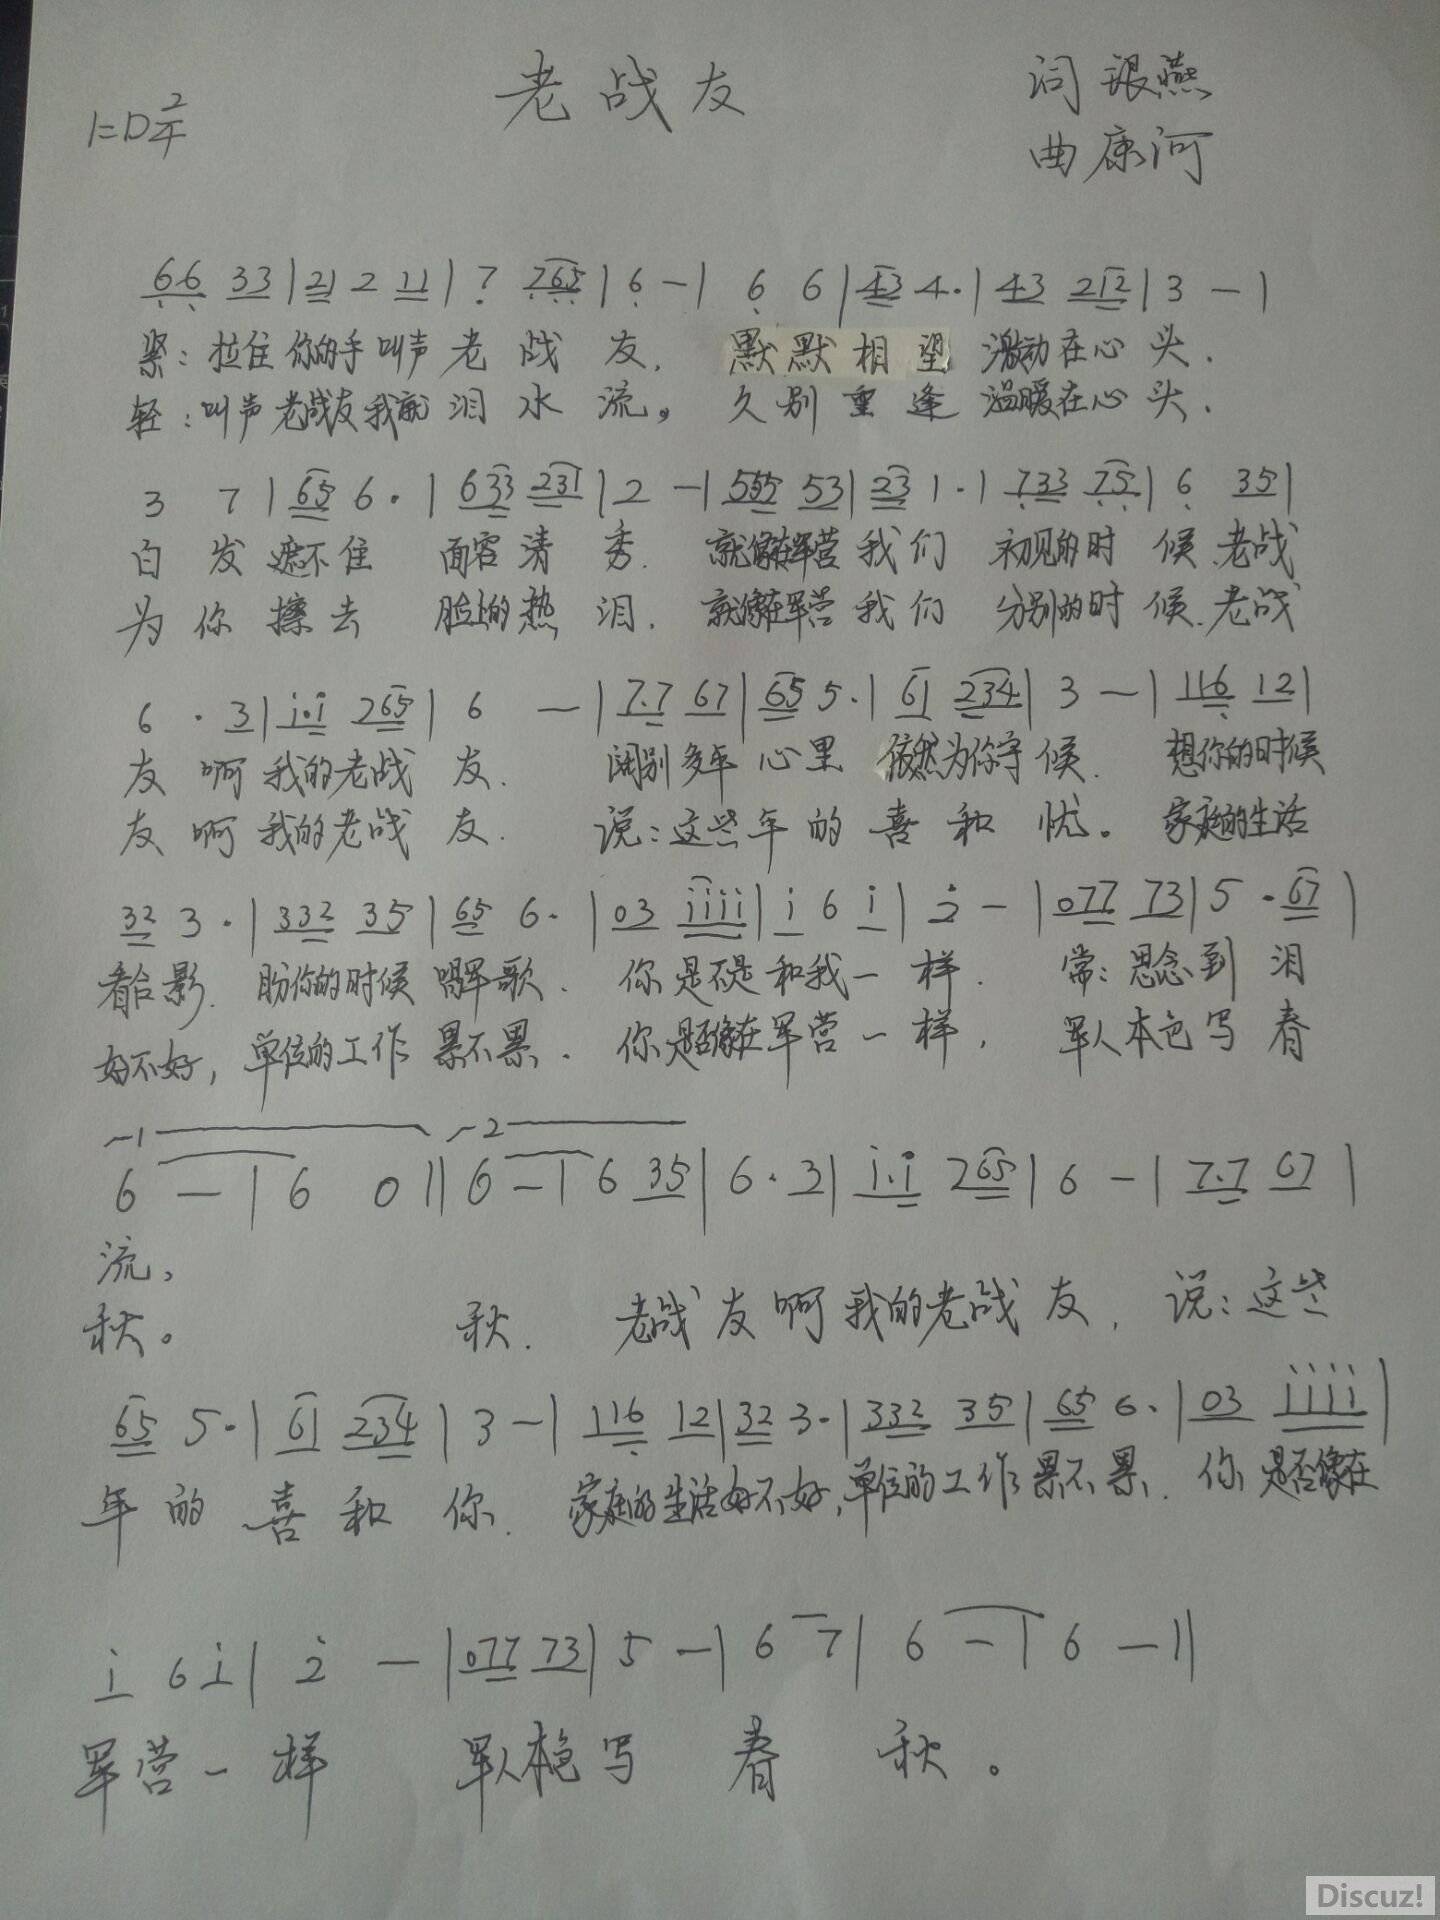 老战友
词 银燕
1=D 2/4
曲 康河
66 33 | 21 2 11 | 7 765 | 6 - | 6 6 | 43 4. | 43 212 | 3 - |
紧:拉住你的手叫声老战友, 默默相望 激动在心头.
轻:叫声老战友我就泪水流。 久别重逢 温暖在心头.
3 7 | 65 6. | 633 231 | 2 - | 555 53 | 23 1. | 733 75 | 6 35 |
白发遮不住 面容清秀. 就像在军营我们 初见的时候.老战
为你擦去 脸上的热泪. 就像在军营我们 分别的时候.老战
6 . 3 | i.i 265 | 6 - | 7.7 67 | 65 5. | 61 234 | 3 - | 116 12 |
友啊我的老战友. 阔别多年心里依然为你守候. 想你的时候
友啊我的老战友. 说:这些年的喜和忧。 家庭的生活
32 3. | 332 35 | 65 6. | 03 iiii | i 6 i | 2 - | 077 73 | 5 . 67 |
看合影. 盼你的时候唱军歌. 你是不是和我一样. 常:思念到泪
好不好, 单位的工作累不累. 你是否像在军营一样, 军人本色写春
1 2
6 - | 6 0 || 6 - | 6 35 | 6 . 3 | i.i 265 | 6 - | 7.7 67 |
流,
秋。 秋. 老战友啊我的老战友, 说:这些
65 5. | 61 234 | 3 - | 116 12 | 32 3. | 332 35 | 65 6. | 03 iiii |
年的喜和你. 家庭的生活好不好,单位的工作累不累. 你是否像在
i 6 i | 2 - | 077 73 | 5 - | 6 7 | 6 - | 6 - ||
军营一样 军人本色写春秋。
Discuz!